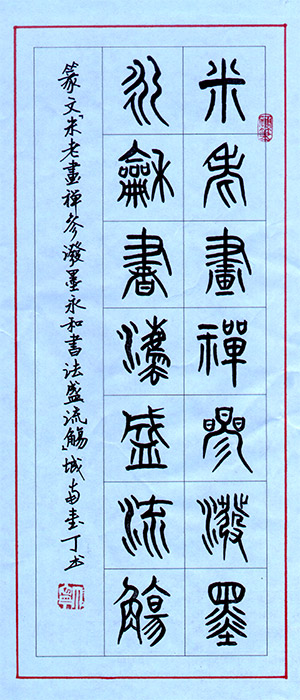 米老畫禪參潑墨
永和書法盛流觴
篆文「米老畫禪參潑墨永和書法盛流觴」城南臺丁书